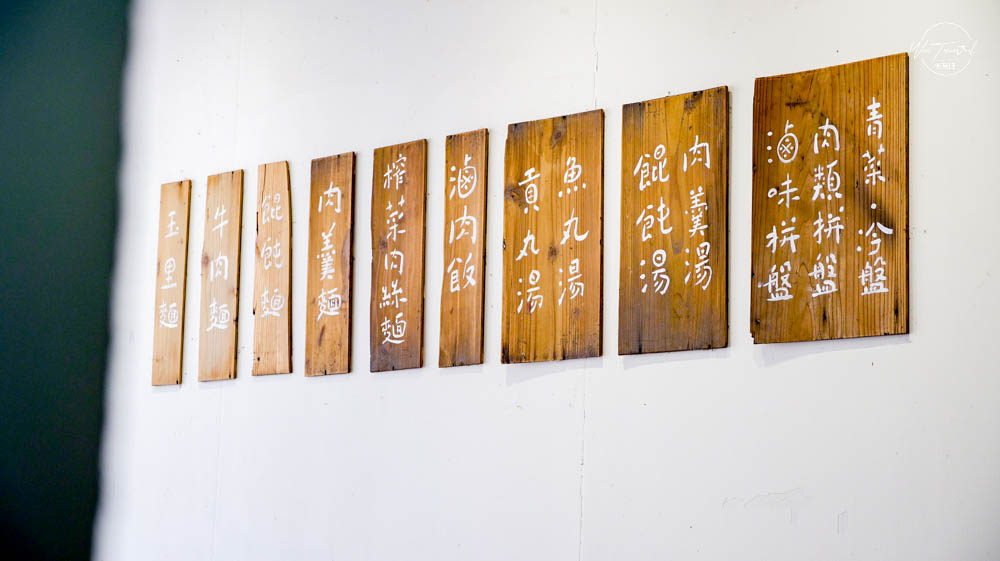 玉里麵
牛肉麵
餛飩麵
肉羹麵
榨菜肉絲麵
滷肉飯
魚丸湯
貢丸湯
肉羹湯
餛飩湯
青菜·冷盤
肉類拼盤
滷味拼盤